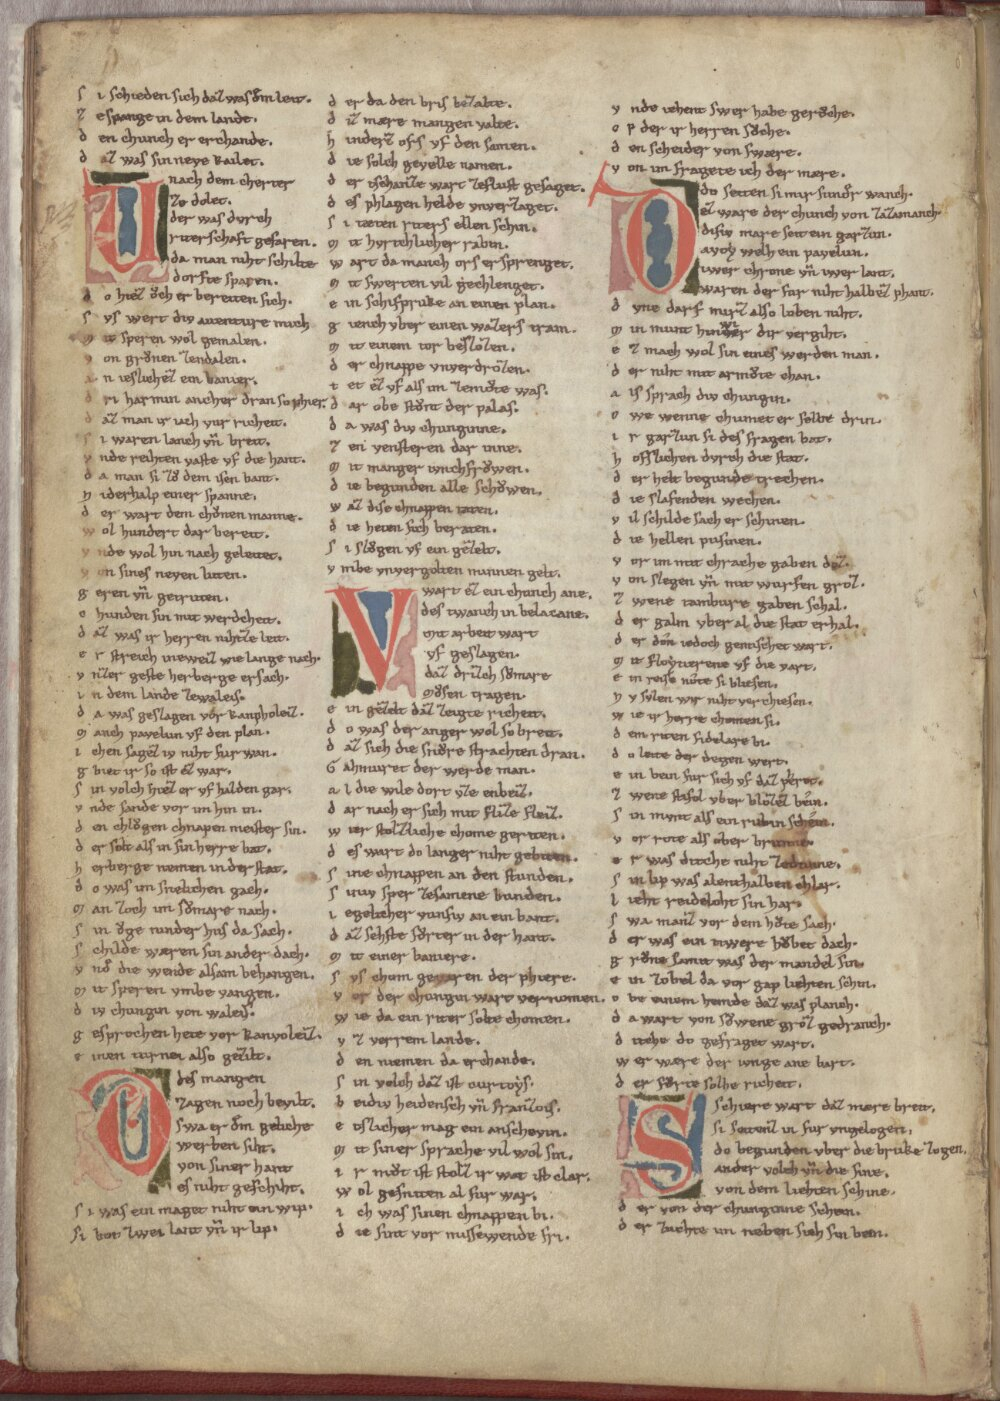 s i schieden sich daz was om leit.
z e spange in dem lande.
d en chunech er erchande.
d az was sin neve kailet.
U nach dem cherter
zv dolet.
der was dvrch
riterschaft gefaren.
da man niht schilte
dorfte sparen.
d o hiez och er bereiten sich.
s vs wert div auenture mich
m it speren wol gemalen.
v on gronen zendalen.
a n ieslichez ein banier.
d ri harmin ancher dran so phier.
d az man ir iach vur richeit.
s i waren lanch vn breit.
v nde reihten vaste vf die hant.
d a man si zo dem isen bant.
n iderhalp einer spanne.
d er wart dem chonen manne.
w ol hundert dar bereit.
v nde wol hin nach geleitet.
v on sines neven luten.
g eren vn getruten.
c hunden sin mit werdcheit.
d az was ir herren nihtze leit.
e r streich ineweiz wie lange nach.
v nzer geste herberge ersach.
i n dem lande zewaleis.
d a was geslagen vor kanpholeiz.
m anch pavelun vf den plan.
i chen sagez iv niht fur wan.
g biet ir so ist ez war.
s in volch hiez er vf halden gar.
v nde sande vor im hin in.
d en chlogen chnapen meister sin.
d er solt als in sin herre bat.
h erberge nemen in der stat.
d o was im snelichen gach.
m an zoch im somare nach.
s in oge ninder hus da sach.
s childe wæren sin ander dach.
v no die wende alsam behangen.
m it speren vmbe vangen.
d iv chungin von waleis.
g esprochen hete vor kanvoleiz.
e inen turnei also gezilt.
D des mangen
zagen noch bevilt.
swa er om geliche
werben siht.
von siner hant
es niht geschiht.
s i was ein maget niht ein wip.
si bot zwei lant vn ir lip.
d er da den bris bezalte.
d iz mære mangen valte.
h inderz ors vf den samen.
d ie solch gevelle namen.
d er tschanze wart zeflust gesaget.
d es phlagen helde vnverzaget.
s i tæten riters ellen schin.
m it hvrtchlicher rabin.
w art da manch ors ersprenget.
m it swerten vil gechlenget.
e in schifpruke an einen plan.
g iench vber einen wazers tram.
m it einem tor beslozen.
d er chnappe vnverdrozen.
t et ez vf als im zemote was.
d ar obe stont der palas.
d a was div chunginne.
z en vensteren dar inne.
m it manger iunchfrowen.
d ie begunden alle schowen.
w az dise chnappen taten.
d ie heten sich beraten.
s i slogen vf ein gezelt.
v mbe vnvergolten minnen gelt.
V wart ez ein chunch ane.
des twanch in belacane.
mit arbeit wart
vf geslagen.
daz drizch somare
mosen tragen.
e in gezelt daz zeigte richeit.
d o was der anger wol so breit.
d az sich die snore strachten dran.
G ahmuret der werde man.
a l die wile dort vze enbeiz.
d ar nach er sich mit flize fleiz.
w ier stolzliche chome geriten.
d es wart do langer niht gebiten.
s ine chnappen an den stunden.
s iniv sper zesamene bunden.
i egelicher funfiv an ein bant.
d az sehste forter in der hant.
m it einer baniere.
s vs chom gevaren der phiere.
v or der chungin wart vernomen.
w ie da ein riter solte chomen.
v z verrem lande.
d en niemen da erchande.
s in volch daz ist curtoys.
b eidiv heidensch vn franzois.
e tslicher mag ein anschevin.
m it siner sprache vil wol sin.
i r mot ist stolz ir wat ist clar.
w ol gesniten al fur war.
i ch was sinen chnappen bi.
d ie sint vor missewende fri.
v nde iehent swer habe geroche.
o p der ir herren soche.
d en scheider von swære.
v on im fragete ich der mære.
D do seiten si mir sunder wanch.
ez ware der chunch von zazamanch.
disiv mare seit ein garzun.
avoy welh ein pavelun.
iwer chrone vn iwer lant.
waren der fur niht halbez phant.
d vne darf mirz also loben niht.
m in munt hin der dir vergiht.
e z mach wol sin eines werden man.
d er niht mit armote chan.
a ls sprach div chungin.
o we wenne chumet er selbe drin.
i r garzun si des fragen bat.
h offslichen dvrch die stat.
d er helt begunde trechen.
d ie slafenden wechen.
v il schilde sach er schinen.
d ie hellen pusinen.
v or im mit chrache gaben doz.
v on slegen vn mit wurfen groz.
z wene tambure gaben schal.
d er galm vber al die stat erhal.
d er don iedoch gemischet wart.
m it floytierene vf die vart.
e in reise note si bliesen.
n v svlen wir niht verchiesen.
w ie ir herre chomen si.
d em riten fidelare bi.
d o leite der degen wert.
e in bein fur sich vf daz pfert.
z wene stifol vber blozez bein.
s in mvnt als ein rubin schein.
v or rote als ober brunne.
e r was ditche niht zedunne.
s in lip was alenthalben chlar.
l ieht reideloht sin har.
s wa manz vor dem hote sach.
d er was ein tiwere hobet dach.
g rone samit was der mandel sin.
e in zobel da vor gap liehten schin.
o be einem hemde daz was planch.
d a wart von sowene groz gedranch.
d itche do gefraget wart.
w er wære der iunge ane bart.
d er forte solhe richeit.
S schiere wart daz mære breit.
si seitenz in fur vngelogen.
do begunden vber die bruke zogen.
ander volch vn die sine.
von dem liehten schine.
d er von der chunginne schein.
d er zuchte im neben sich sin bein.